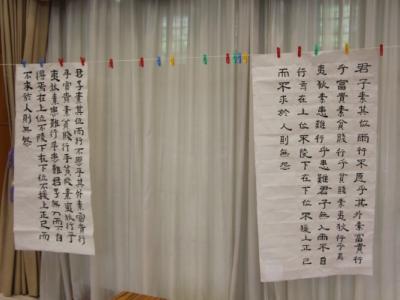 君子素其位而行不愿乎其外素富貴行
乎富貴素貧賤行乎貧賤素夷狄行乎
夷狄素患難行乎患難君子無入而不自
得焉在上位不陵下在下位不援上正己
而不求於人則無怨
君子素其位而行不愿乎其外素富貴行
乎富貴素貧賤行乎貧賤素夷狄行乎
夷狄素患難行乎患難君子無入而不自
得焉在上位不陵下在下位不援上正己而
不求於人則無怨